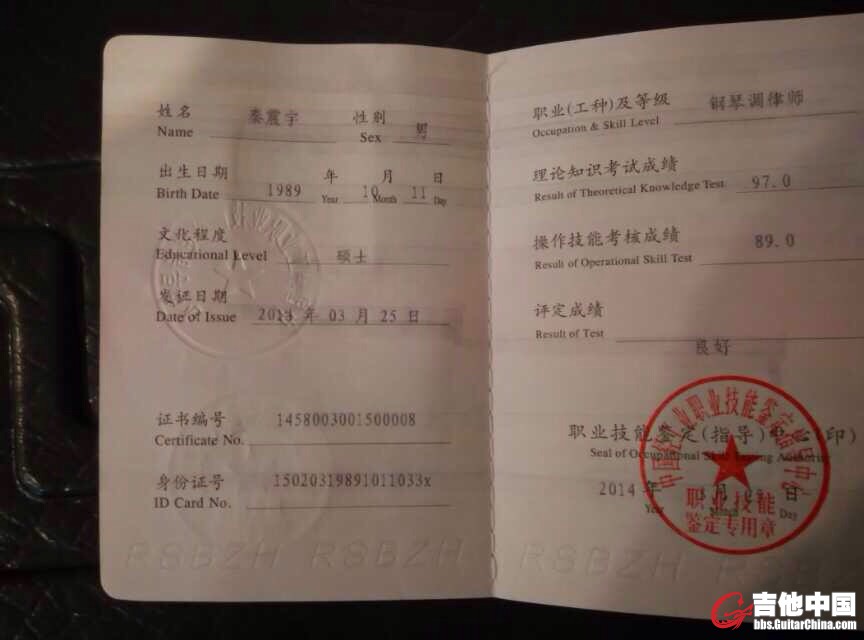 姓名 秦震宇 性别 男
Name Sex
出生日期 1989 年 10 月 11 日
Birth Date Year Month Day
文化程度
Educational Level 硕士
发证日期
Date of Issue 年 03 月 25 日
证书编号 1458003001500008
Certificate No.
身份证号 15020319891011033x
ID Card No.
RSBZH RSBZH
职业(工种)及等级 钢琴调律师
Occupation & Skill Level
理论知识考试成绩
Result of Theoretical Knowledge Test 97.0
操作技能考核成绩 89.0
Result of Operational Skill Test
评定成绩
Result of Test
良好
职业技能鉴定(指导)中心(印)
Seal of Occupational Skill Testing Authority
2014 年 月 日
Year Month Day
职业技能
鉴定专用章
RSBZH RSBZH
吉他中国
bbs.GuitarChina.com